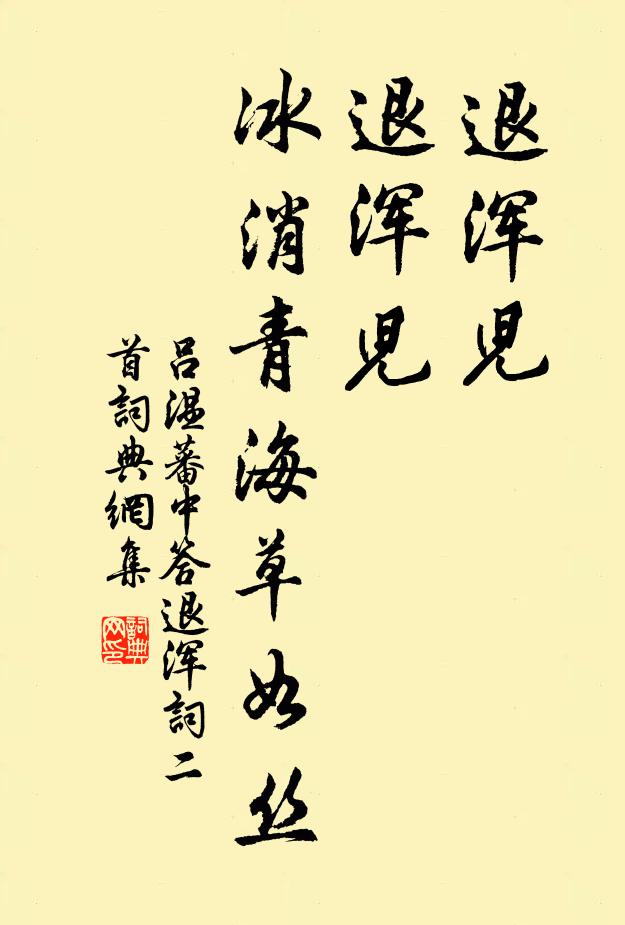 退浑児
退浑児
冰消青海草如丝
吕温蕃中答退浑詞二
首詞典網集
詞典
网印